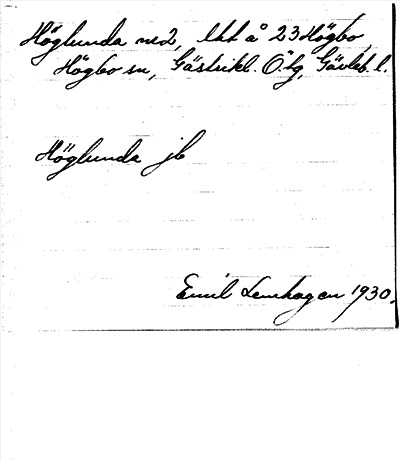 Höglunda nr2, lht å 23 Högbo,
Högbo sn, Gästrikl. Ö. tg, Gävleb. l.
Höglunda jb
Emil Lenhagen 1930.